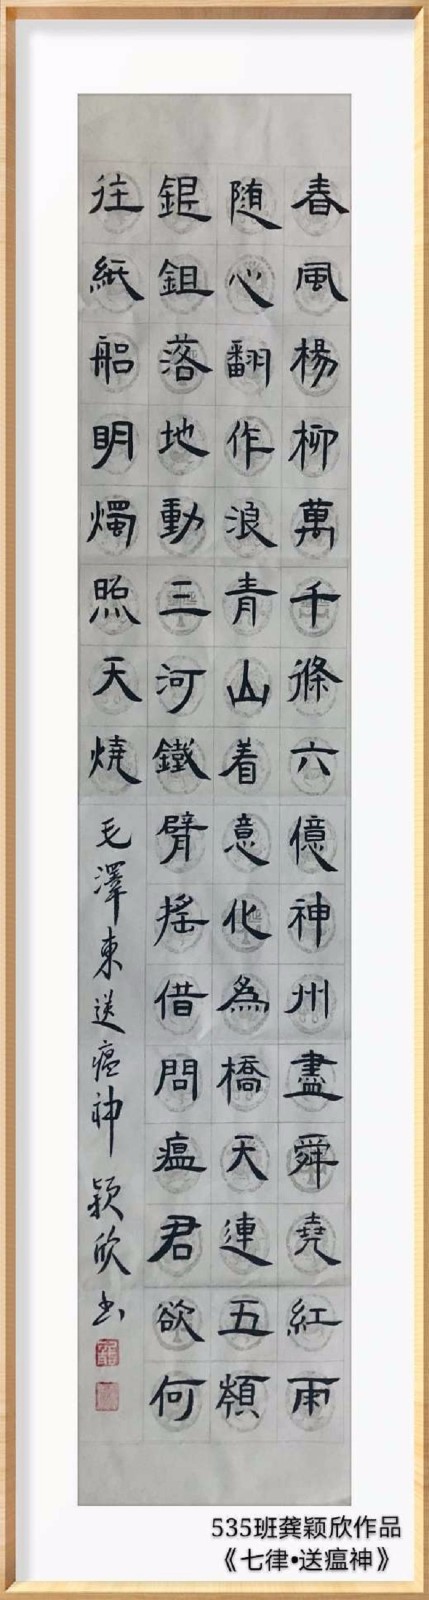 春風楊柳萬千條六億神州盡舜堯紅雨
随心翻作浪青山着意化為橋天連五嶺
銀鉏落地動三河鐵臂搖借問瘟君欲何
往紙船明燭照天燒
毛澤東送瘟神 颖欣书
535班龚颖欣作品
《七律•送瘟神》